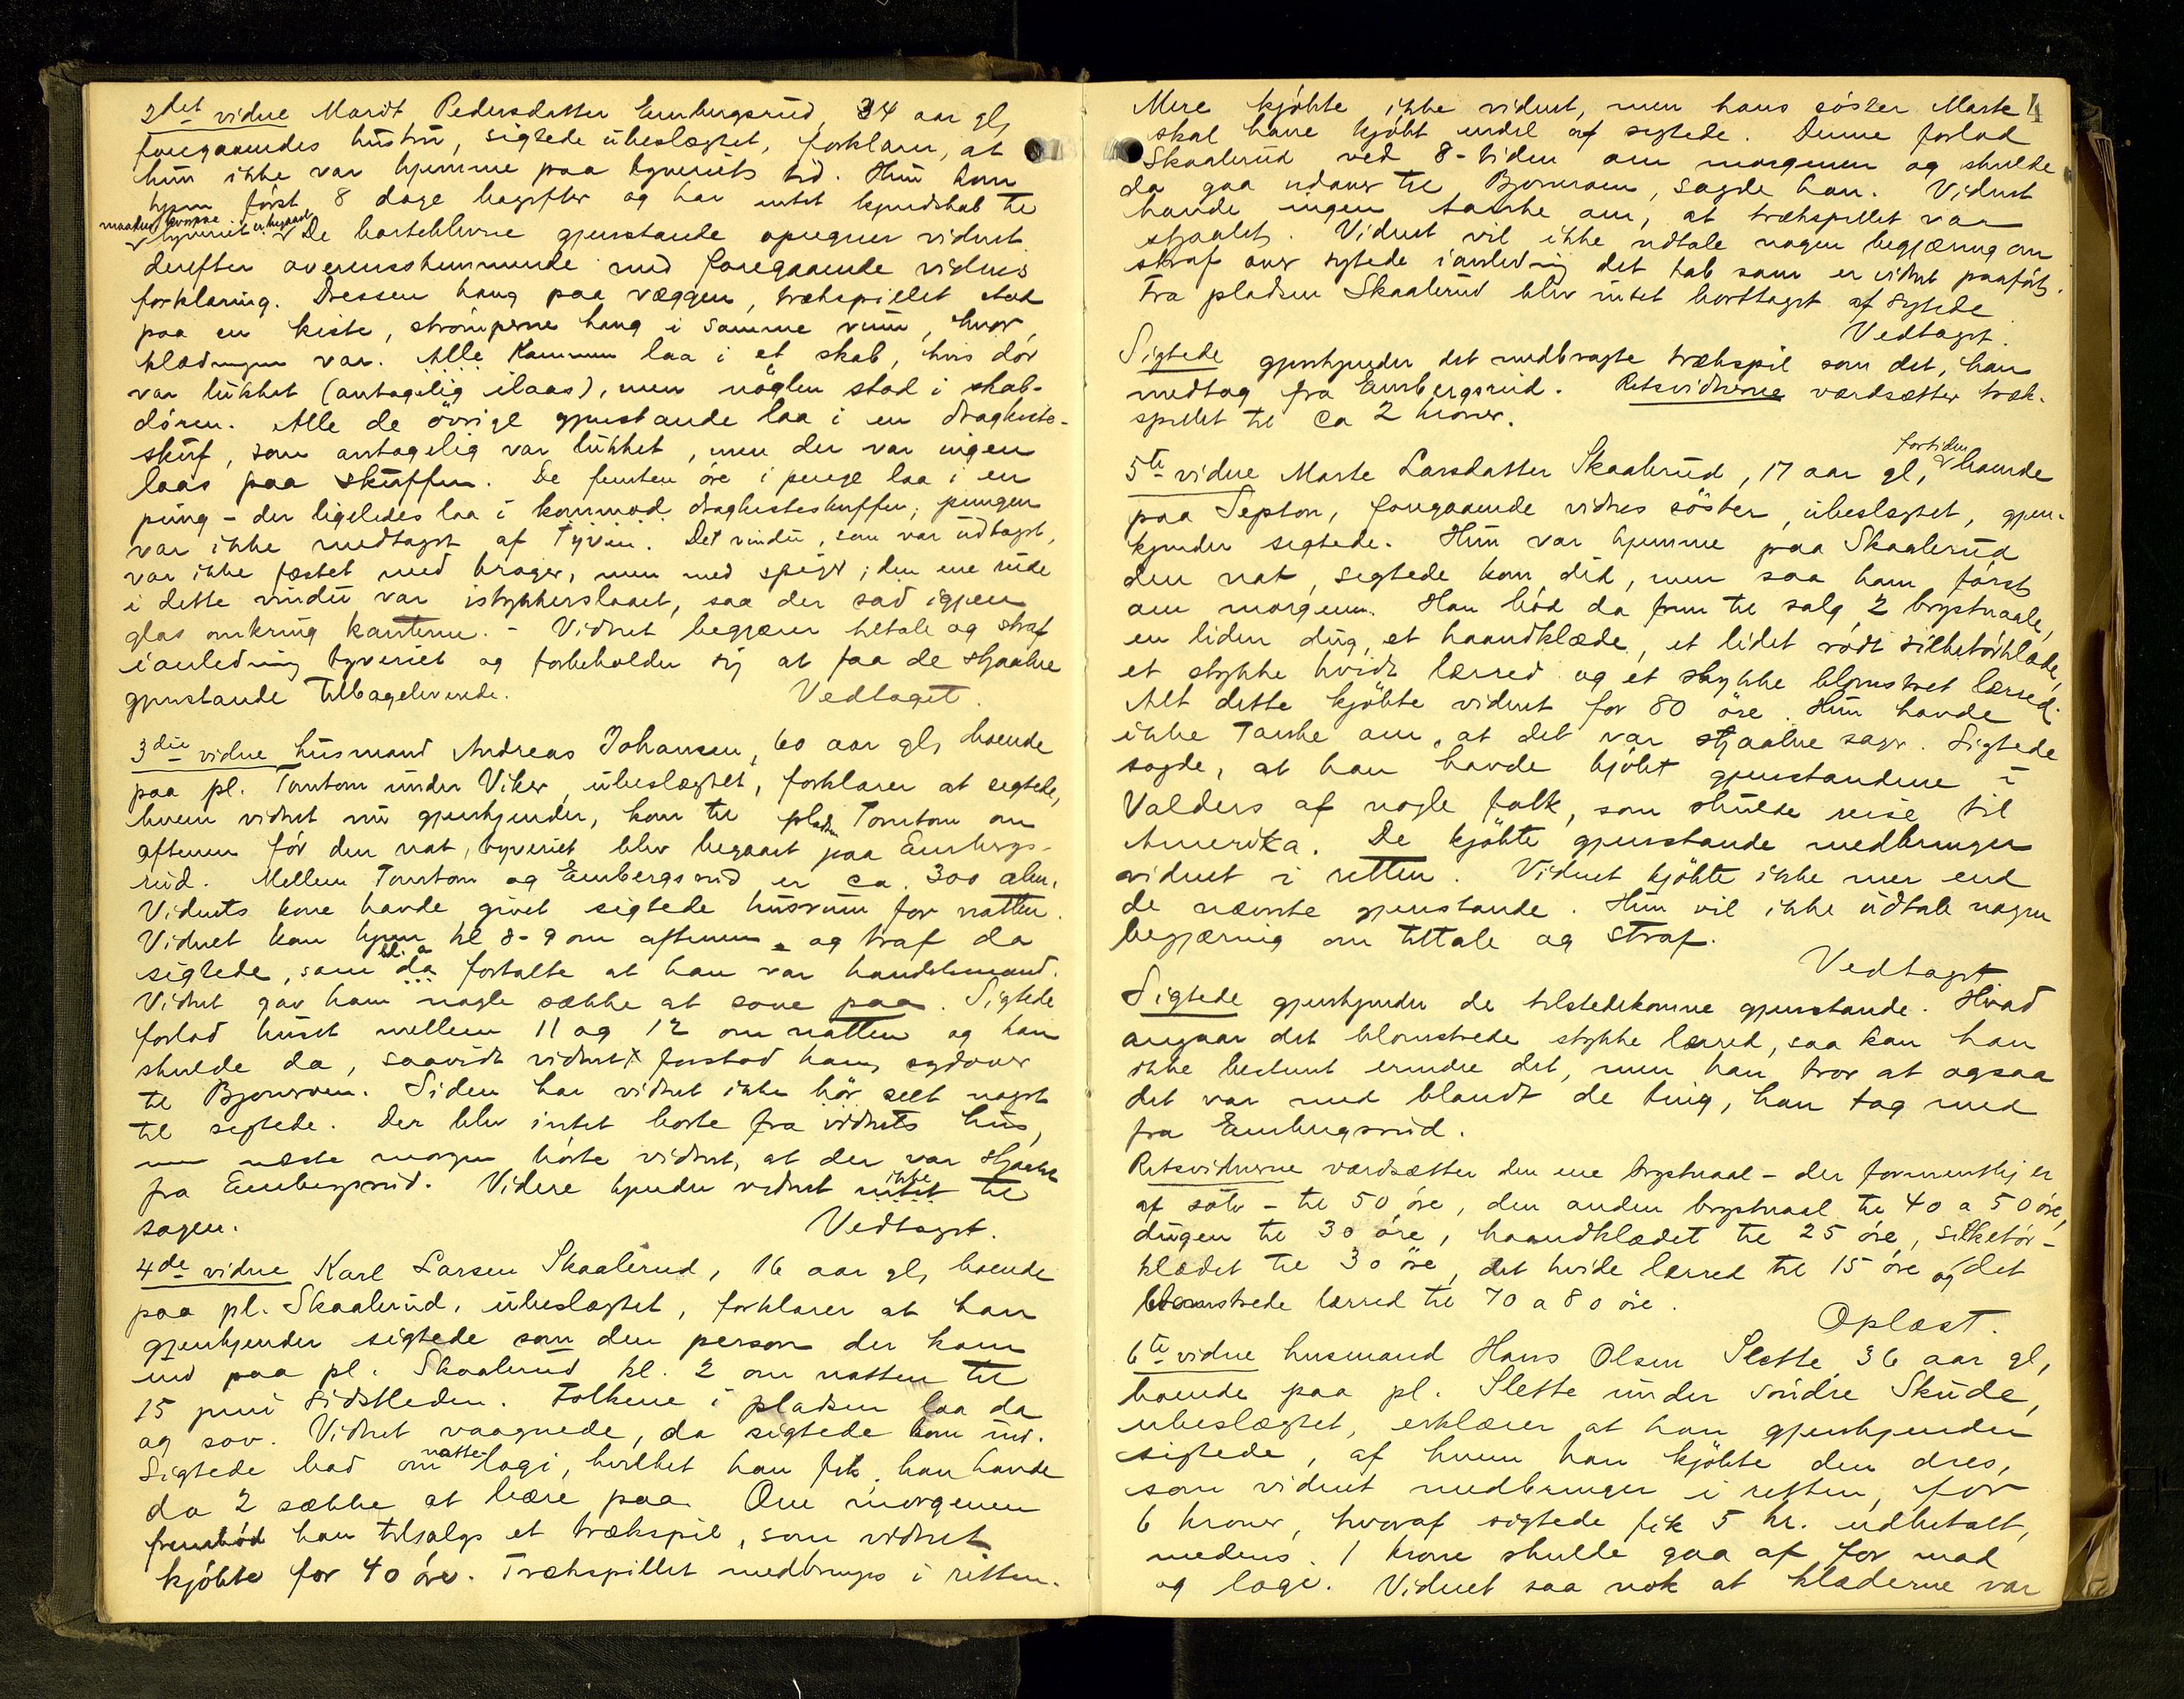 2det vidne Marit Pedersdatter Embergsrud, 34 aar gl,
foregaaendes hustru, sigtede ubeslægtet, forklarer, at
hun ikke var hjemme paa tyveriets tid. Hun kom
hjem først 8 dage bagefter og har intet kjendskab til
maaden, hvorpaa tyveriet er begaaet. De bortblevne gjenstande opregner vidnet
derefter overensstemmende med foregaaende vidnes
forklaring. Dressen hang paa væggen, trækspillet stod
paa en kiste, strømperne hang i samme rum, hvor
klædningen var. Alle Kammen laa i et skab, hvis dør
var lukket (antagelig ilaas), men nøglen stod i skab-
døren. Alle de øvrige gjenstande laa i en dragkiste-
skuf, som antagelig var lukket, men der var ingen
laas paa skuffen. De femten øre i penge laa i en
pung - der ligeledes laa i kommod dragkisteskuffen; pungen
var ikke medtaget af Tyven. Det vindu, som var udtaget,
var ikke fæstet med kroger, men med spiger; den ene rude
i dette vindu var istykkerslaaet, saa der sad igjen
glas omkring kanterne. - Vidnet begjærer tiltale og straf
i anledning tyveriet og forbeholder sig at faa de stjaalne
gjenstande tilbageleverede. Vedtaget.
3die vidne husmand Andreas Johansen, 60 aar gl, boende
paa pl. Tomtom under Viker, ubeslægtet, forklarer at sigtede,
hvem vidnet nu gjenkjender, kom til pladsen Tomtom om
aftenen før den nat, tyveriet blev begaaet paa Embergs-
rud. Mellem Tomtom og Embergsrud er ca. 300 alen.
Vidnets kone havde givet sigtede husrum for natten.
Vidnet kom hjem kl 8-9 om aftenen og traf da
sigtede, som bl. a. da fortalte at han var handelsmand.
Vidnet gav ham nogle sække at sove paa. Sigtede
forlod huset mellem 11 og 12 om natten og han
skulde da, saavidt vidnet forstod ham, sydover
til Bjoneroen. Siden har vidnet ikke hør seet noget
til sigtede. Der blev intet borte fra vidnets hus,
men næste morgen hørte vidnet, at der var stjaalet
fra Embergsrud. Videre kjender vidnet intet ikke til
sagen. Vedtaget.
4de vidne Karl Larsen Skaalerud, 16 aar gl, boende
paa pl. Skaalerud, ubeslægtet, forklarer at han
gjenkjender sigtede som den person der kom
ind paa pl. Skaalerud kl. 2 om natten til
15 juni sidstleden. Folkene i pladsen laa da
og sov. Vidnet vaagnede, da sigtede kom ind.
Sigtede bad om natte-logi, hvilket han fik; han havde
da 2 sække at bære paa. Om morgenen
frembød han tilsalgs et trækspil, som vidnet
kjøbte for 40 øre. Trækspillet medbringes i retten.
4
Mere kjøbte ikke vidnet, men hans søster Marte
skal have kjøbt endel af sigtede. Denne forlod
Skaalerud ved 8-tiden om morgenen og skulde
da gaa udover til Bjoneroen, sagde han. Vidnet
havde ingen tanke om, at trækspillet var
stjaalet. Vidnet vil ikke udtale nogen begjæring om
straf over sigtede i anledning det tab som er vidnet paaført.
Fra pladsen Skaalerud blev intet borttaget af sigtede
Vedtaget.
Sigtede gjenkjender det medbragte trækspil som det, han
medtog fra Embergsrud. Retsvidnerne værdsætter træk-
spillet til ca 2 kroner.
5te vidne Marte Larsdatter Skaalerud, 17 aar gl, fortiden boende
paa Septon, foregaaende vidnes søster, ubeslægtet, gjen-
kjender sigtede. Hun var hjemme paa Skaalerud
den nat, sigtede kom did, men saa ham først
om morgenen. Han bød da frem til salg 2 brystnaale,
en liden dug, et haandklæde, et lidet rødt silketørklæde,
et stykke hvidt lærred og et stykke blomstret lærred.
Alt dette kjøbte vidnet for 80 øre. Hun havde
ikke Tanke om, at det var stjaalne sager. Sigtede
sagde, at han havde kjøbt gjenstandene i
Valders af nogle folk, som skulde reise til
Amerika. De kjøbte gjenstande medbringer
vidnet i retten. Vidnet kjøbte ikke mer end
de nævnte gjenstande. Hun vil ikke udtale nogen
begjæring om tiltale og straf.
Vedtaget
Sigtede gjenkjender de tilstedekomne gjenstande. Hvad
angaar det blomstrede stykke lærred, saa kan han
ikke bestemt erindre det, men han tror at ogsaa
det var med blandt de ting, han tog med
fra Embergsrud.
Retsvidnerne værdsætter den ene brystnaal - der formentlig er
af sølv - til 50 øre, den anden brystnaal til 40 a 50 øre,
dugen til 30 øre, haandklædet til 25 øre, silketør-
klædet til 30 øre, det hvide lærred til 15 øre og det
blomstrede lærred til 70 a 80 øre.
Oplæst.
6te vidne husmand Hans Olsen Slette, 36 aar gl,
boende paa pl. Slette under søndre Skude,
ubeslægtet, erklærer at han gjenkjender
sigtede, af hvem han kjøbte den dres,
som vidnet medbringer i retten, for
6 kroner, hvoraf sigtede fik 5 kr. udbetalt,
medens 1 krone skulle gaa af for mad
og logi. Vidnet saa nok at klæderne var